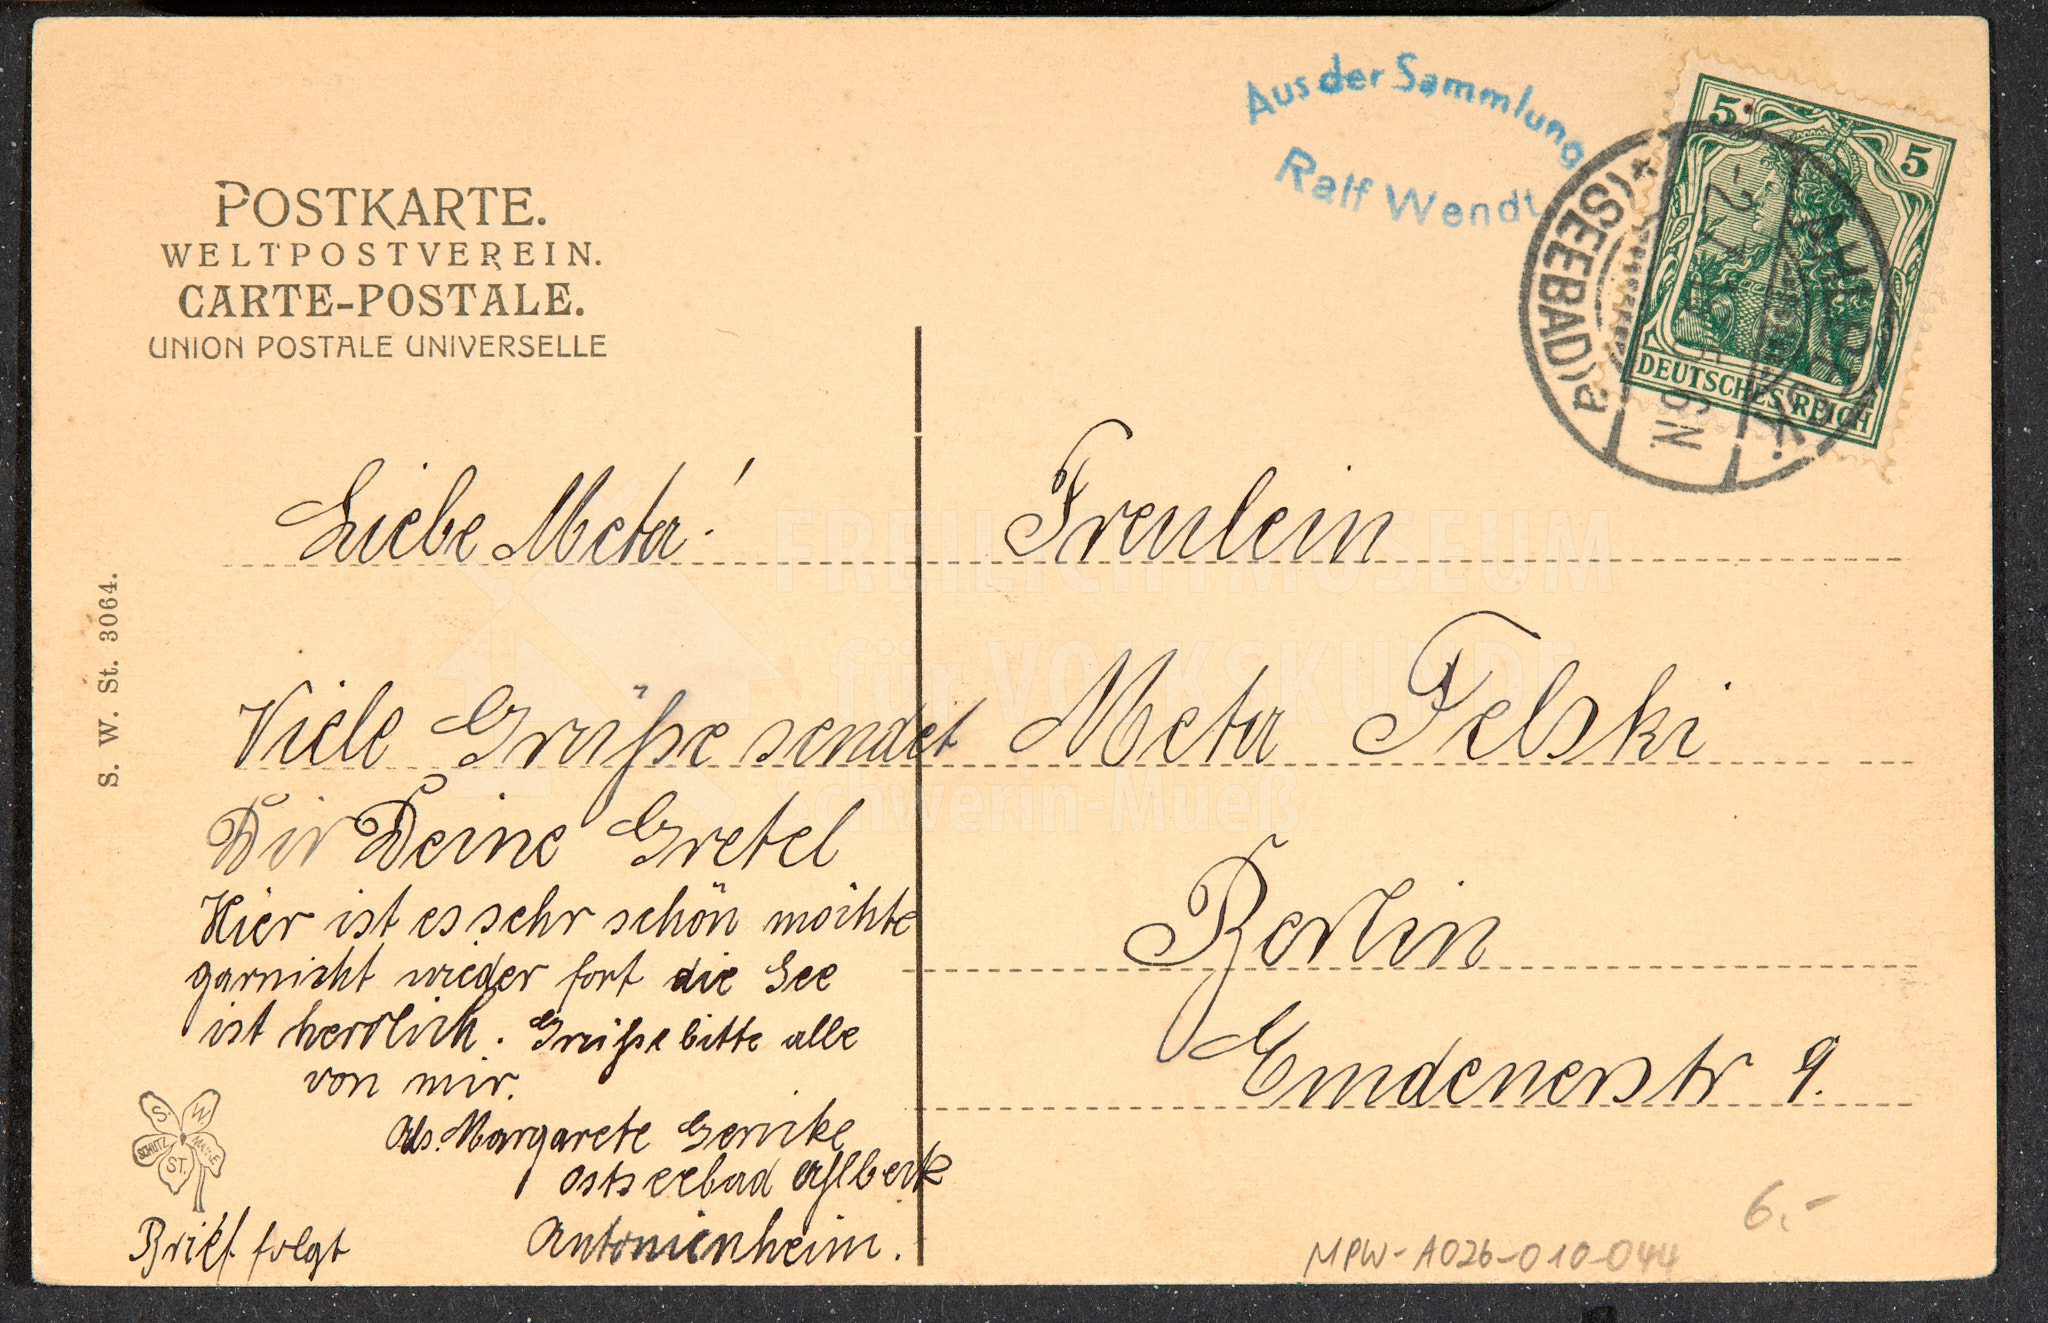 POSTKARTE.
WELTPOSTVEREIN.
CARTE-POSTALE.
UNION POSTALE UNIVERSELLE
Aus der Sammlung
Ralf Wendt
5 5
DEUTSCHES REICH
(SEEBAD) a
S. W. St. 3064.
Liebe Meta!
Viele Grüße sendet
Dir Deine Gretel
Hier ist es sehr schön möchte
garnicht wieder fort die See
ist herrlich. Grüße bitte alle
von mir.
Ads. Margarete Gericke
Ostseebad Ahlbeck
Antonienheim.
Brief folgt
S. W.
SCHUTZ MARKE
ST.
Freulein
Meta Felski
Berlin
Emdenerstr 9.
6.-
MPW-A026-010-044
FREILICHTMUSEUM
für VOLKSKUNDE
Schwerin-Mueß